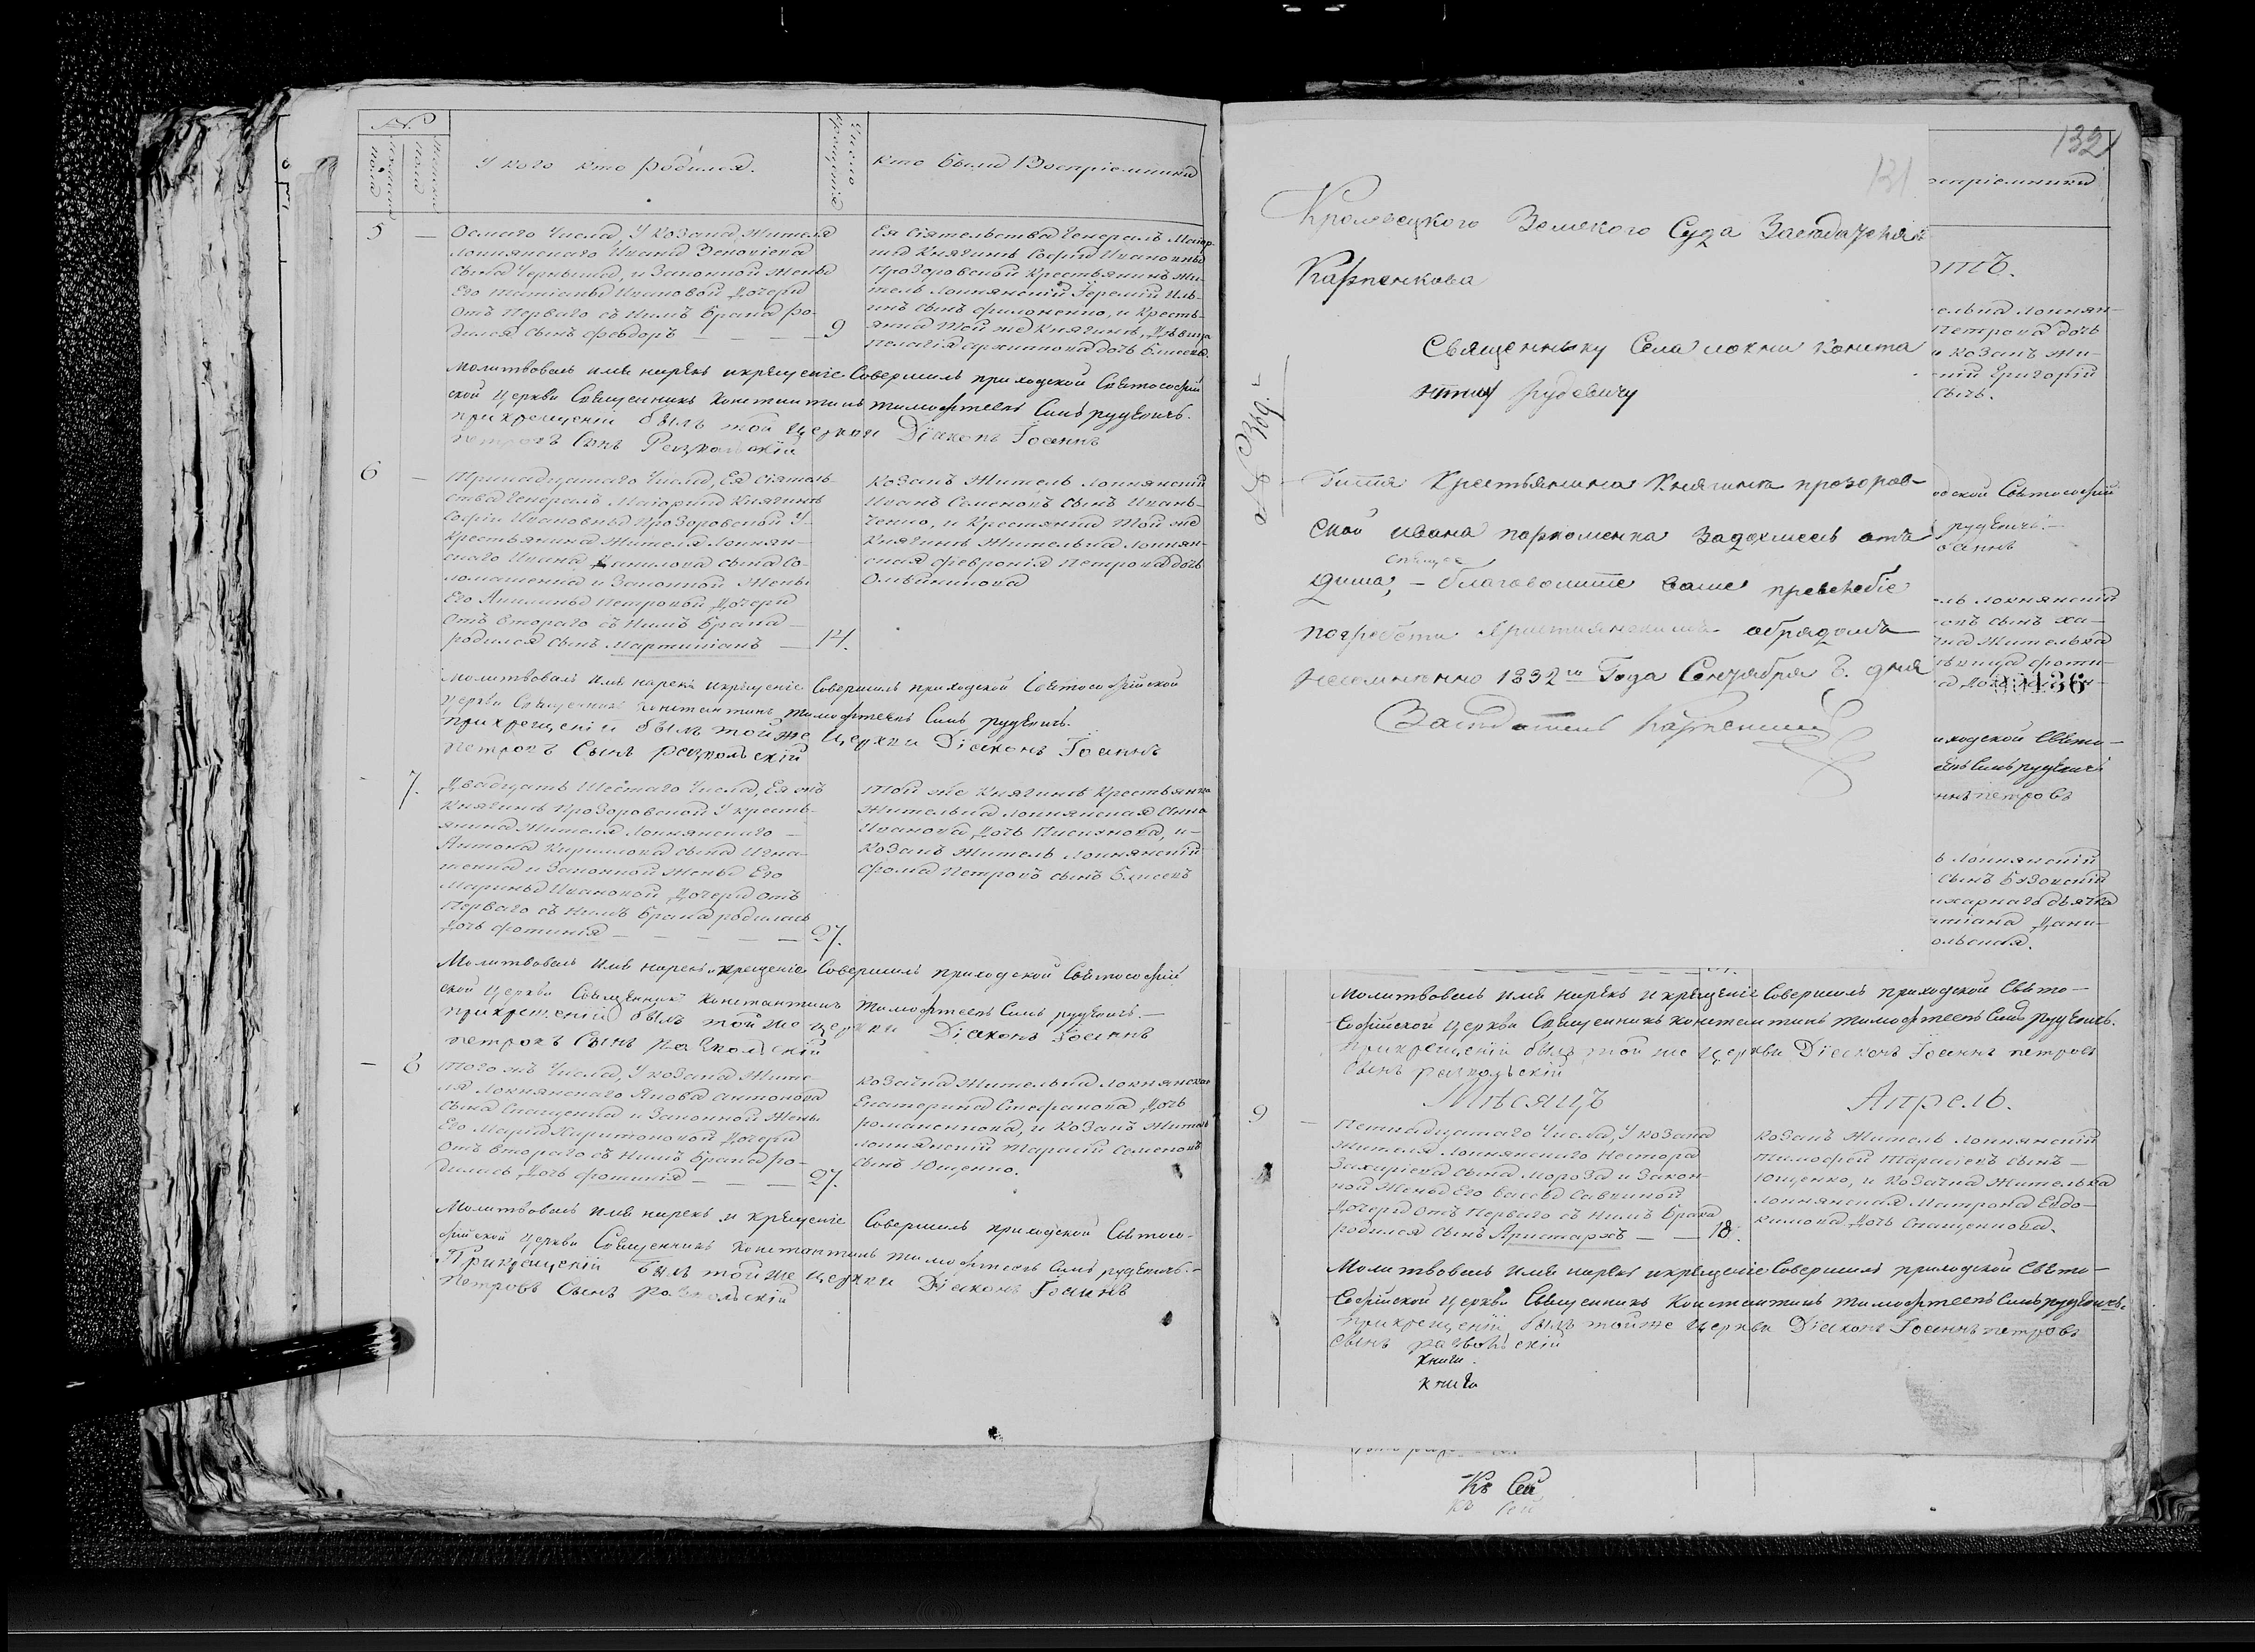 №
Мужеска пола
Женска пола
У кого кто родился.
Число крещенія
кто были Воспріемники
5 —
Осмаго Числа, У козака Жителя
локнянскаго Ивана Зеновіева
сына Черныша, и Законной Жены
Его татіаны Ивановой Дочери
отъ Перваго съ Нимъ брака ро-
дился сынъ Феодоръ — — — — 9
Ея Сіятельства Генералъ Маіор-
ши Княгинѣ Софіи Ивановны
Прозоровской Крестьянинъ Жи-
тель локнянскій Іеремій Иль-
инъ сынъ Филоненко, и Кресть-
янка той же Княгинѣ, Дѣвица
молитвовалъ имя нарекъ и крещеніе Совершилъ приходской Святософій
ской Церкви Священникъ Константинъ тимофѣевъ Сынъ рудѣвичъ.
при крещеніи былъ той Церкви Діаконъ Іоаннъ
петровъ Сынъ
6 —
Тринадцатаго Числа, Ея Сіятель-
ства Генералъ Маіорши Княгинѣ
Софіи Ивановны Прозоровской У
крестьянина Жителя Локнян-
скаго Ивана Данилова сына Со-
ломашенка и Законной Жены
Его Акилины Петровой Дочери
отъ втораго съ Нимъ брака
родился сынъ Мартиніанъ — 14.
Козакъ Житель локнянскій
Иванъ Семеновъ сынъ Ивань-
ченко, и Крестьянка той же
Княгинѣ Жителька локнян-
ская Февронія Петрова дочь
Олейникова
Молитвовалъ Имя нарекъ и крещеніе Совершилъ приходской Святософійской
Церкви Священникъ Константинъ тимофѣевъ Сынъ рудѣвичъ.
при крещеніи былъ той же Церкви Діаконъ Іоаннъ
петровъ Сынъ
7.
Двадцать Шестаго Числа, Ея жъ
Княгинѣ Прозоровской У кресть-
янина Жителя Локнянскаго
Антона Кирилова сына Игна-
тенка и Законной Жены Его
Марины Ивановой Дочери отъ
Перваго съ нимъ брака родилась
Дочь Фотинія — — — — — 27.
той же Княгинѣ Крестьянка
Жителька локнянская Анна
Иванова Дочь Пискнова, и
Козакъ Житель Локнянскій
Фома Петровъ сынъ
Молитвовалъ Имя нарекъ и крещеніе Совершилъ приходской Святософій
ской Церкви Священникъ Константинъ тимофѣевъ Сынъ рудѣвичъ.—
при крещеніи былъ той же Церкви Діаконъ Іоаннъ
петровъ Сынъ
— 8
того жъ Числа, У козака Жите-
ля Локнянскаго Якова Антонова
сына Спащенка и Законной Жены
Его Маріи Харитоновой Дочери
отъ втораго съ Нимъ брака ро-
дилась Дочь Фотинія — — — 27.
козачка Жителька локнянская
Екатерина Стефанова Дочь
романенкова, и Козакъ Житель
локнянскій Тарасій Семеновъ
сынъ Ющенко.
Молитвовалъ Имя нарекъ и крещеніе Совершилъ приходской Святосо-
фійской Церкви Священникъ Константинъ тимофѣевъ Сынъ рудѣвичъ.
При крещеніи былъ той же Церкви Діаконъ Іоаннъ
Петровъ Сынъ
131
Кролевецкого Земского Суда Заседателя
Карпенкова
Священнику Села локни Конста
нтину рудевичу
Дитя Крестьянина Княгинѣ прозоров-
ской ивана пархоменка Задохшеесь отъ
душа, — благоволите ваше
погребсти Християнскимъ обрядомъ
неотменно 1832го Года Сентября 8. дня
Заседатель Карпенков
132
оспріемники
ртъ.
ельна локнян-
Петрова дочь
и козакъ жи-
ній Григорій
сынъ.
одской Святософій
рудѣвичъ.
оаннъ
ль локнянскій
овъ сынъ ха-
ка Жителька
136
иходской Свято-
аннъ петровъ
ь локнянскій
Молитвовалъ Имя нарекъ и крещеніе Совершилъ приходской Свято-
Софійской Церкви Священникъ Константинъ тимофѣевъ Сынъ рудѣвичъ.
при крещеніи былъ той же Церкви Діаконъ Іоаннъ петровъ
Сынъ
Мѣсяцъ Апрель.
9 —
Петнадцатаго Числа, У козака
Жителя Локнянскаго Нестора
Захаріева сына Мороза и Закон-
ной Жены Его Васы Савиной
Дочери отъ Перваго съ Нимъ брака
родился сынъ Аристархъ — — 18.
козакъ Житель локнянскій
тимофей Тарасіевъ сынъ —
Ющенко, и Козачка Жителька
локнянская Матрона Евдо-
кимова Дочь Спащенкова.
Молитвовалъ Имя нарекъ и крещеніе Совершилъ приходской Свято-
Софійской Церкви Священникъ Константинъ тимофѣевъ Сынъ рудѣвичъ.
при крещеніи былъ той же Церкви Діаконъ Іоаннъ петровъ
Сынъ
книги
книга
Къ Сей
къ сей